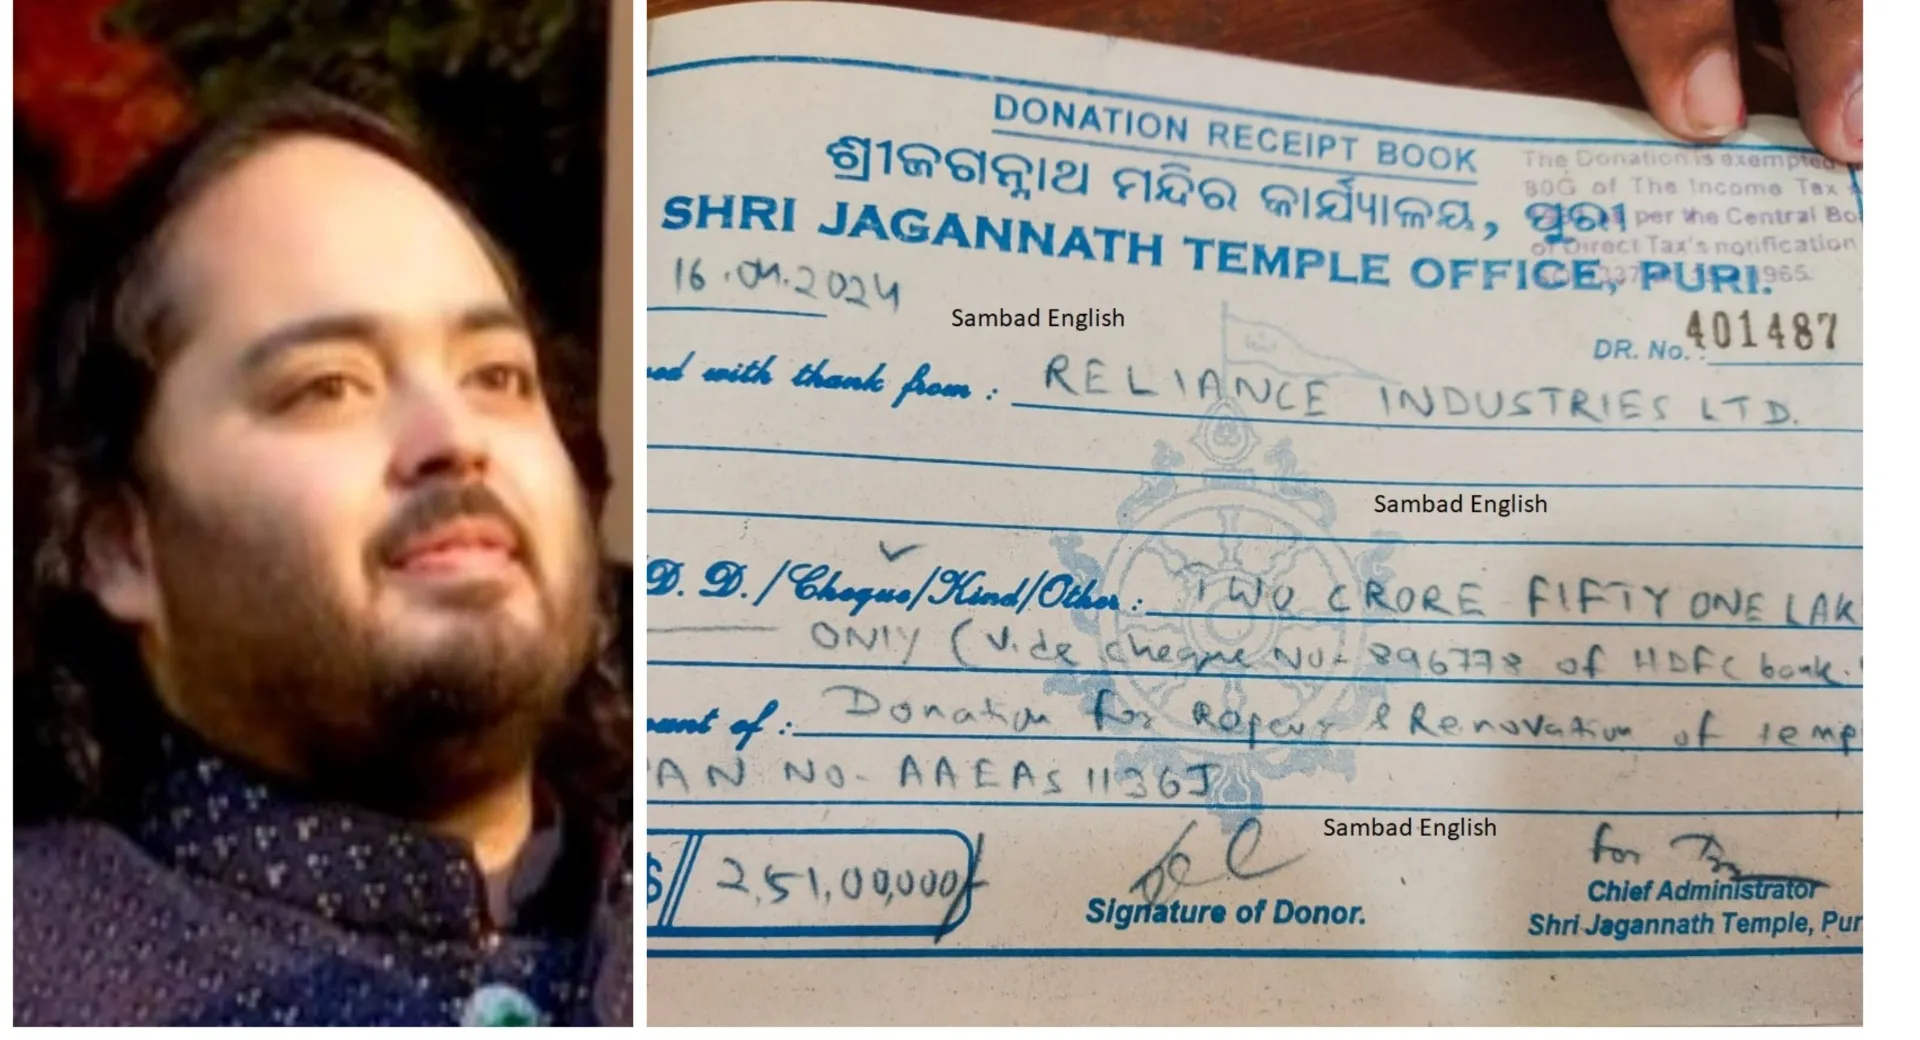 DONATION RECEIPT BOOK
ଶ୍ରୀଜଗନ୍ନାଥ ମନ୍ଦିର କାର୍ଯ୍ୟାଳୟ, ପୁରୀ
The Donation is exempted
80G of The Income Tax
per the Central Bo
of Direct Tax's notification
1965.
SHRI JAGANNATH TEMPLE OFFICE, PURI.
16.04.2024
Sambad English
DR. No. 401487
ed with thank from : RELIANCE INDUSTRIES LTD.
Sambad English
D. D./Cheque/Kind/Other : TWO CRORE FIFTY ONE LAK
ONLY (Vide cheque No- 896778 of HDFC bank.
unt of : Donation for Repair & Renovation of temp
AN NO- AAEAS1136J
Sambad English
2,51,00,000/-
for
Signature of Donor.
Chief Administrator
Shri Jagannath Temple, Pur